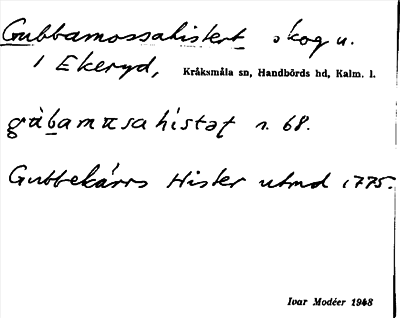 Gubbamossahistert skog u.
i Ekeryd, Kråksmåla sn, Handbörds hd, Kalm. l.
gùbamɷsahístəţ s. 68.
Gubbekärrs Hister utmd 1775.
Ivar Modéer 1948